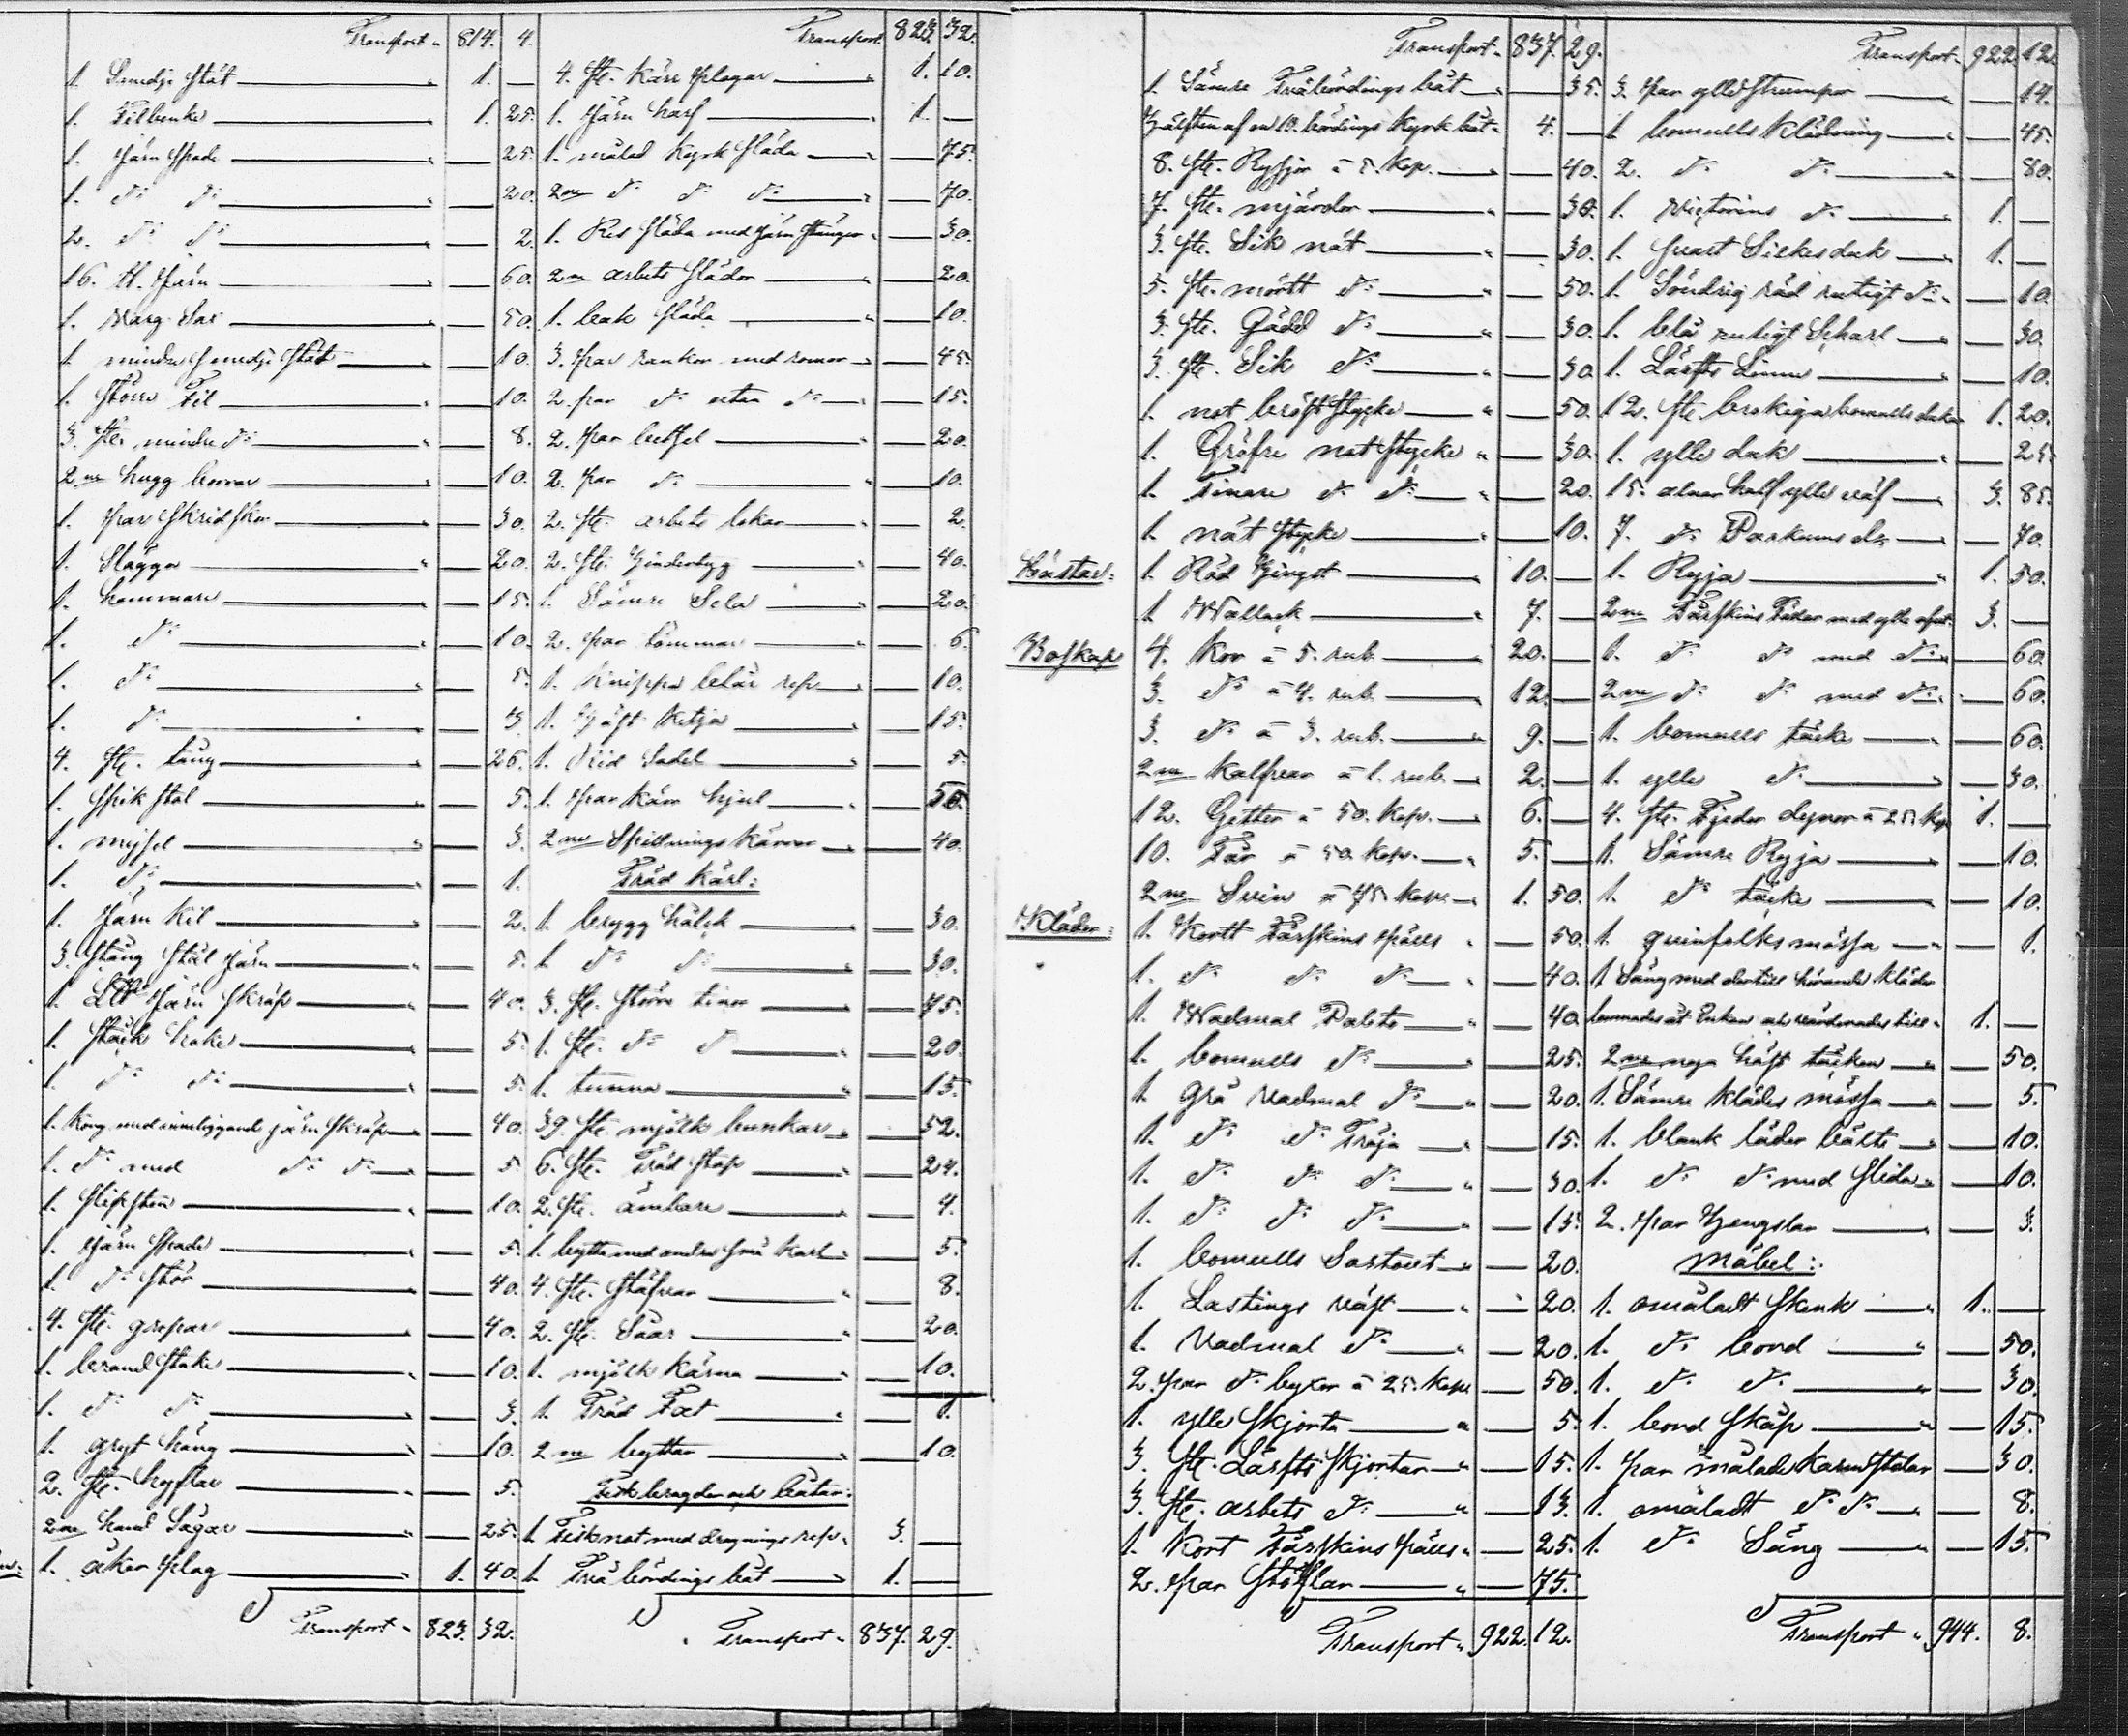 Transport " 814. 4.
1. Smedje städ " 1. —
1. Filbenke " 1. 25.
1. Järn spade " — 25.
1. D:o D:o " — 20.
2. D:o D:o " — 2.
16. ℔. Järn " — 60.
1. Varg Sax " — 50.
1. mindre smedje städ " — 10.
1. större Fil " — 10.
3. ste. mindre D:o " — 8.
2ne hugg borrar " — 10.
1. par skridskor " — 30.
1. Slägga " — 20.
1. hammare " — 15.
1. D:o " — 10.
1. D:o " — 5.
1. D:o " — 3.
4. ste. tång " — 26.
1. spik stål " — 5.
1. mejsel " — 3.
1. D:o " — 1.
1. Järn kil " — 2.
3. stång stål järn " — 5.
1. L℔ Järn skräp " — 40.
1. stack hake " — 5.
1. D:o D:o " — 5.
1. korg med inneliggande järn skräp " — 40.
1. D:o med D:o D:o " — 5.
1. slipsten " — 10.
1. Järn spade " — 5.
1. D:o stör " — 40.
4. ste. grepar " — 40.
1. brand stake " — 10.
1. D:o D:o " — 3.
1. gryt häng " — 10.
2. ste. hyflar " — 5.
2ne hand Sågar " — 25.
1. åker plog " 1. 40.
Transport " 823. 32.
Transport 823. 32.
4. ste. kärr plogar " 1. 10.
1. Järn harf " 1. —
1. målad kyrk släda " — 75.
2ne D:o D:o D:o " — 70.
1. Res släda med järn stänger " — 30.
2ne arbets slädor " — 20.
1. bak släda " — 10.
3. par rankor med remor " — 45.
2. par D:o utan D:o " — 15.
2. par betsel " — 20.
2. par D:o " — 10.
2. ste. arbets lokar " — 2.
2. ste. Hindertyg " — 40.
1. Sämre Sela " — 20.
2. par tömmar " — 6.
1. knippa blår rep " — 10.
1. Häst ketja " — 15.
1. Rid Sadel " — 5.
1. par kärr hjul " — 50.
2ne Spillnings kärror " — 40.
Träd kärl:
1. brygg hålck " — 30.
1. D:o D:o " — 30.
3. ste. större tinor " — 75.
1. ste. D:o D:o " — 20.
1. tunna " — 15.
39. ste. mjölk bunkar " — 52.
6. ste. Träd stop " — 24.
2. ste. ämbare " — 4.
1. bytta med andra små karl " — 5.
4. ste. stäfvar " — 8.
2. ste. Såar " — 20.
1. mjölk kärna " — 10.
1. Träd Fat " —
2ne byttor " — 10.
Fisk bragder och båtar:
1. Fisknot med dragnings rep " 3. —
1. Trä bördings båt " 1. —
Transport " 837. 29.
Transport " 837. 29.
1. Sämre Träbördings båt " — 35.
Hälften af en 10. bördings kyrk båt " 4. —
8. ste. Rysjor à 5. kop. " — 40.
7. ste. mjärdor " — 30.
3. ste. Sik nät " — 30.
5. ste. mörtt D:o " — 50.
3. ste. Gädd D:o " — 30.
3. ste. Sik D:o " — 30.
1. not bröst stycke " — 50.
1. Gröfre not stycke " — 30.
1. Finare D:o D:o " — 20.
1. nät stycke " — 10.
Hästar: 1. Röd Hingst " 10. —
1. Wallack " 7. —
Boskap 4. Kor à 5. rub. 20. —
3. D:o à 4. rub. 12. —
3. D:o à 3. rub. " 9. —
2ne kalfvar à 1. rub. " 2. —
12. Getter à 50. kop. " 6. —
10. Får à 50. kop. " 5. —
2ne Svin à 75. kop. " 1. 50.
Kläder: 1. Kortt Fårskins pälls " — 50.
1. D:o D:o D:o " — 40.
1. Wadmal Paleto " — 40.
1. bomulls D:o " — 25.
1. grå vadmal D:o " — 20.
1. D:o D:o Tröja " — 15.
1. D:o D:o D:o " — 30.
1. D:o D:o D:o " — 15.
1. bomulls Sartout " — 20.
1. Lastings väst " — 20.
1. vadmal D:o " — 20.
2. par D:o byxor à 25. kop. — 50.
1. ylle skjorta " — 5.
3. ste. Lärfts skjortar " — 15.
3. ste. arbets D:o " — 13.
1. Kort Fårskins pälls " — 25.
2. par stöflar " — 75.
Transport " 922. 12.
Transport " 922. 12.
3. par ylle strumpor " — 14.
1 bomulls klädning " — 45.
2. D:o D:o " — 80.
1. Victorins D:o " 1. —
1. svart Silkesduk " 1. —
1. Söndrig röd rutigt D:o " — 10.
1. blå rutigt Scharl " — 30.
1. Lärfts Linne " — 10.
12. ste. brokiga bomulls dukar 1. 20.
1. ylle duk " — 25.
15. alnar half ylle väf " 3. 85.
7. D:o Parkums D:o " — 70.
1. Ryja " 1. 50.
2ne Fårskins Fällar med ylle 3. —
1. D:o D:o med D:o " — 60.
2ne D:o D:o med D:o " — 60.
1. bomulls täcke " — 60.
1. ylle D:o " — 30.
4. ste. Fjeder dynor à 25. kop 1. —
1. Sämre Ryja " — 10.
1. D:o täcke " — 10.
1. qvinfolks mössa " — 1.
1 Säng med dertill hörande kläder
lemnades åt Enkan och värderades till " 1. —
2ne nya häst täcken " — 50.
1. Sämre klädes mössa " — 5.
1. blank läder bälte " — 10.
1. D:o D:o med slida " — 10.
2. par Hengslar " — 3.
Möbel:
1. omåladt skänk " 1. —
1. D:o bord " — 50.
1. D:o D:o " — 30.
1. bord skåp " — 15.
1. par målade karmstolar — 30.
1. omåladt D:o D:o " — 8.
1. D:o Säng " — 15.
Transport " 944. 8.